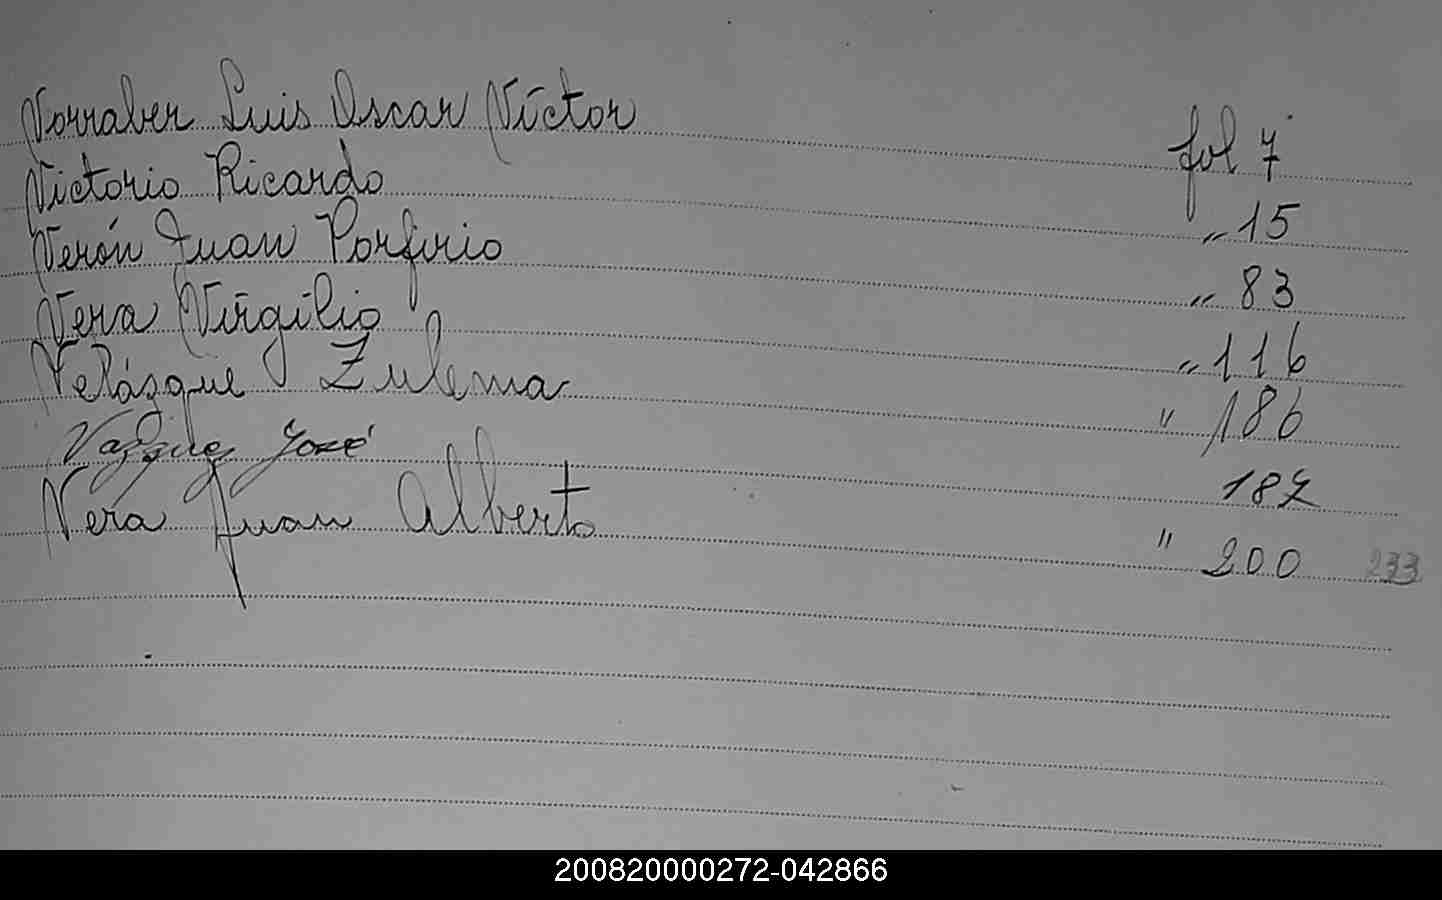 Vorraber Luis Oscar Víctor fol 7
Victorio Ricardo " 15
Verón Juan Porfirio " 83
Vera Virgilio " 116
Velázque Zulema " 186
Vazquez José 187
Vera Juan Alberto " 200 233
200820000272-042866